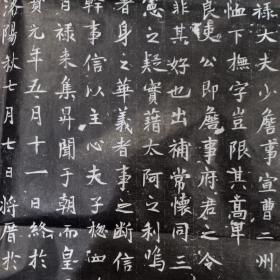 禄大夫少詹事宣曹二州
恤下撫字豈限其高卑
良使公即詹事府君之令
非其好也出補常懷同三
憲之疑實藉太阿之利嗚
者身之華義者事之斷信
幹事信以主心夫子惣四
日禄来集昇聞于朝而皇
元年五月十一日終於
洛陽秋七月七日将厝於